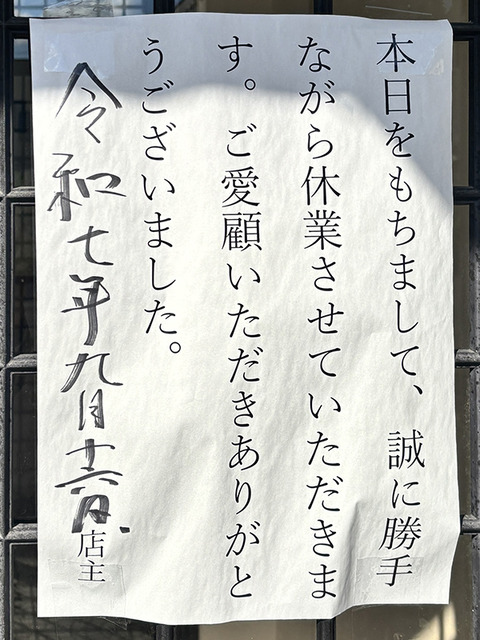 本日をもちまして、誠に勝手
ながら休業させていただきま
す。ご愛顧いただきありがと
うございました。
令和七年九月十六日 店主